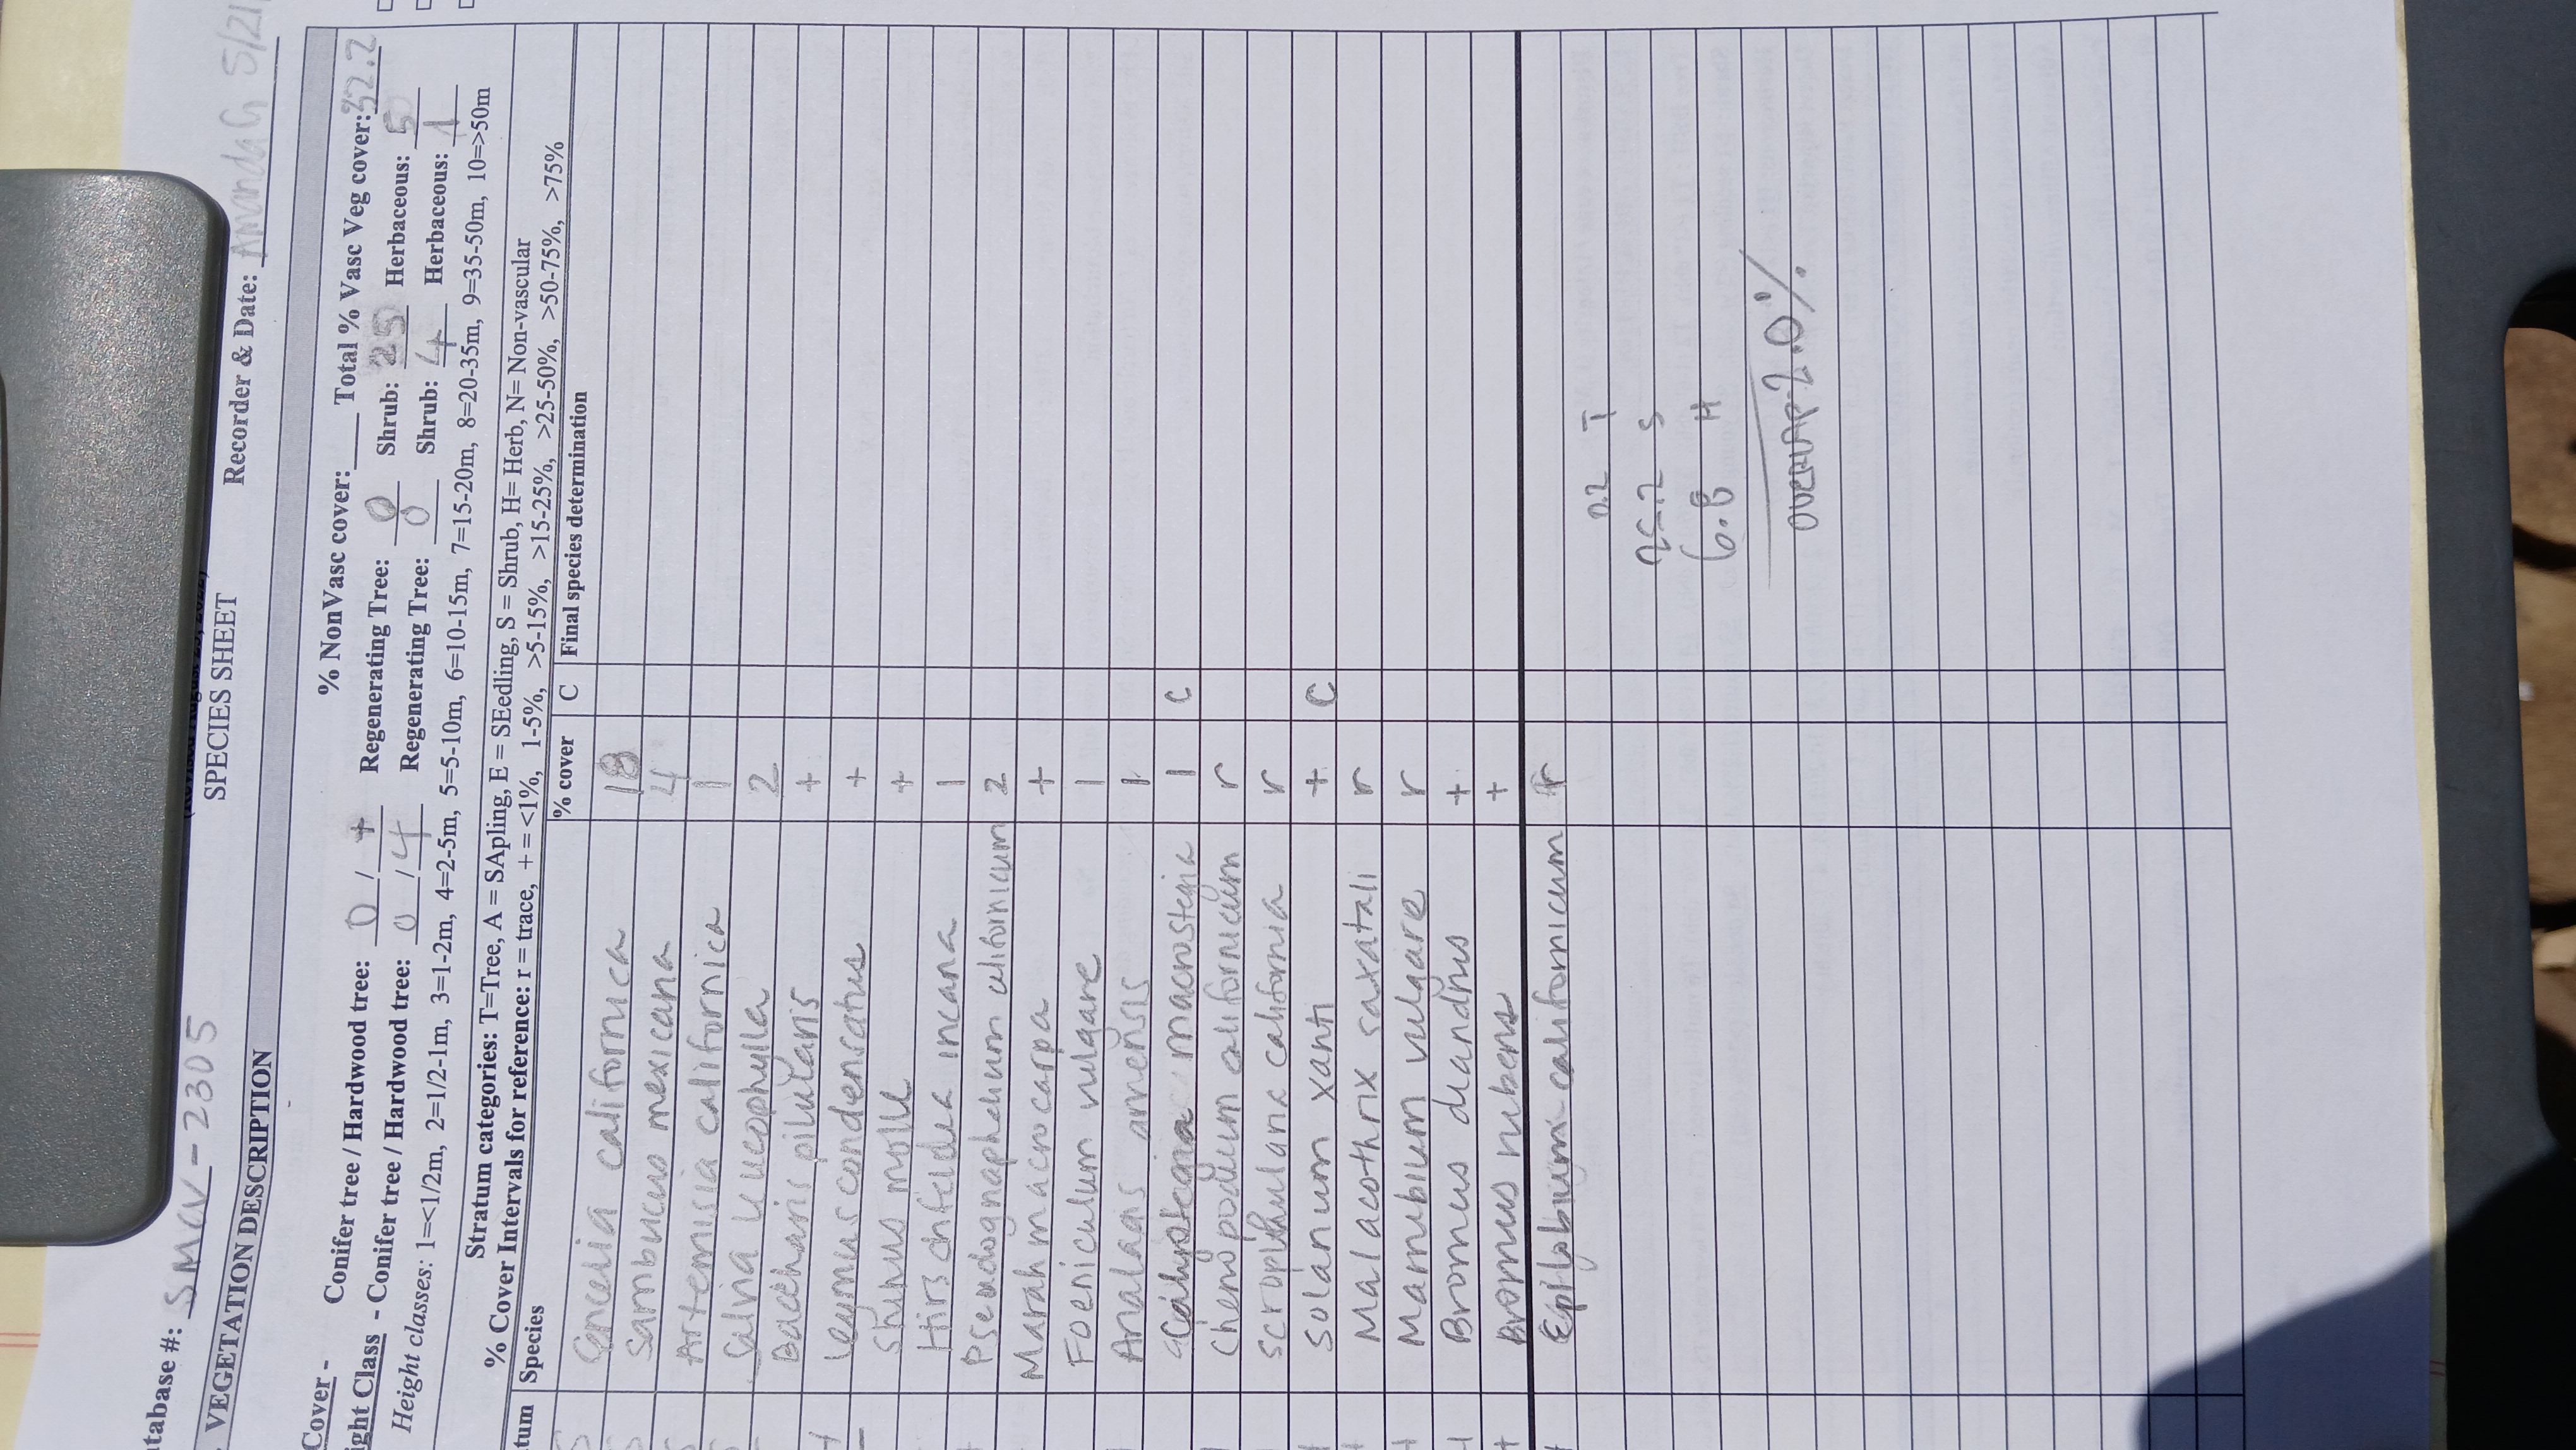 Database #: SMCV-2305
SPECIES SHEET
Recorder & Date: Amanda G 5/21
VEGETATION DESCRIPTION
% NonVasc cover: ___ Total % Vasc Veg cover: 32.2
Cover - Conifer tree / Hardwood tree: 0 / + Regenerating Tree: 0 Shrub: 25 Herbaceous: 5
ight Class - Conifer tree / Hardwood tree: 0 / 4 Regenerating Tree: 0 Shrub: 4 Herbaceous: 1
Height classes: 1=<1/2m, 2=1/2-1m, 3=1-2m, 4=2-5m, 5=5-10m, 6=10-15m, 7=15-20m, 8=20-35m, 9=35-50m, 10=>50m
Stratum categories: T=Tree, A = SApling, E = SEedling, S = Shrub, H= Herb, N= Non-vascular
% Cover Intervals for reference: r = trace, + = <1%, 1-5%, >5-15%, >15-25%, >25-50%, >50-75%, >75%
tum Species % cover C Final species determination
Encelia californica 18
Sambucus mexicana 4
Artemisia californica 1
Salvia leucophylla 2
Baccharis pilularis +
Leymus condensatus +
Shinus molle +
Hirschfeldia incana 1
Pseudognaphalium californicum 2
Marah macrocarpa +
Foeniculum vulgare 1
Analagis arvensis 1
Calystegia macrostegia 1 C
Chenopodium californicum r
Scrophularia california r
Solanum xanti + C
Malacothrix saxatali r
Marrubium vulgare r
Bromus diandrus +
Bromus rubens +
Epilobium californicum r
0.2 T
25.2 S
6.8 H
OVERLAP 2.0%